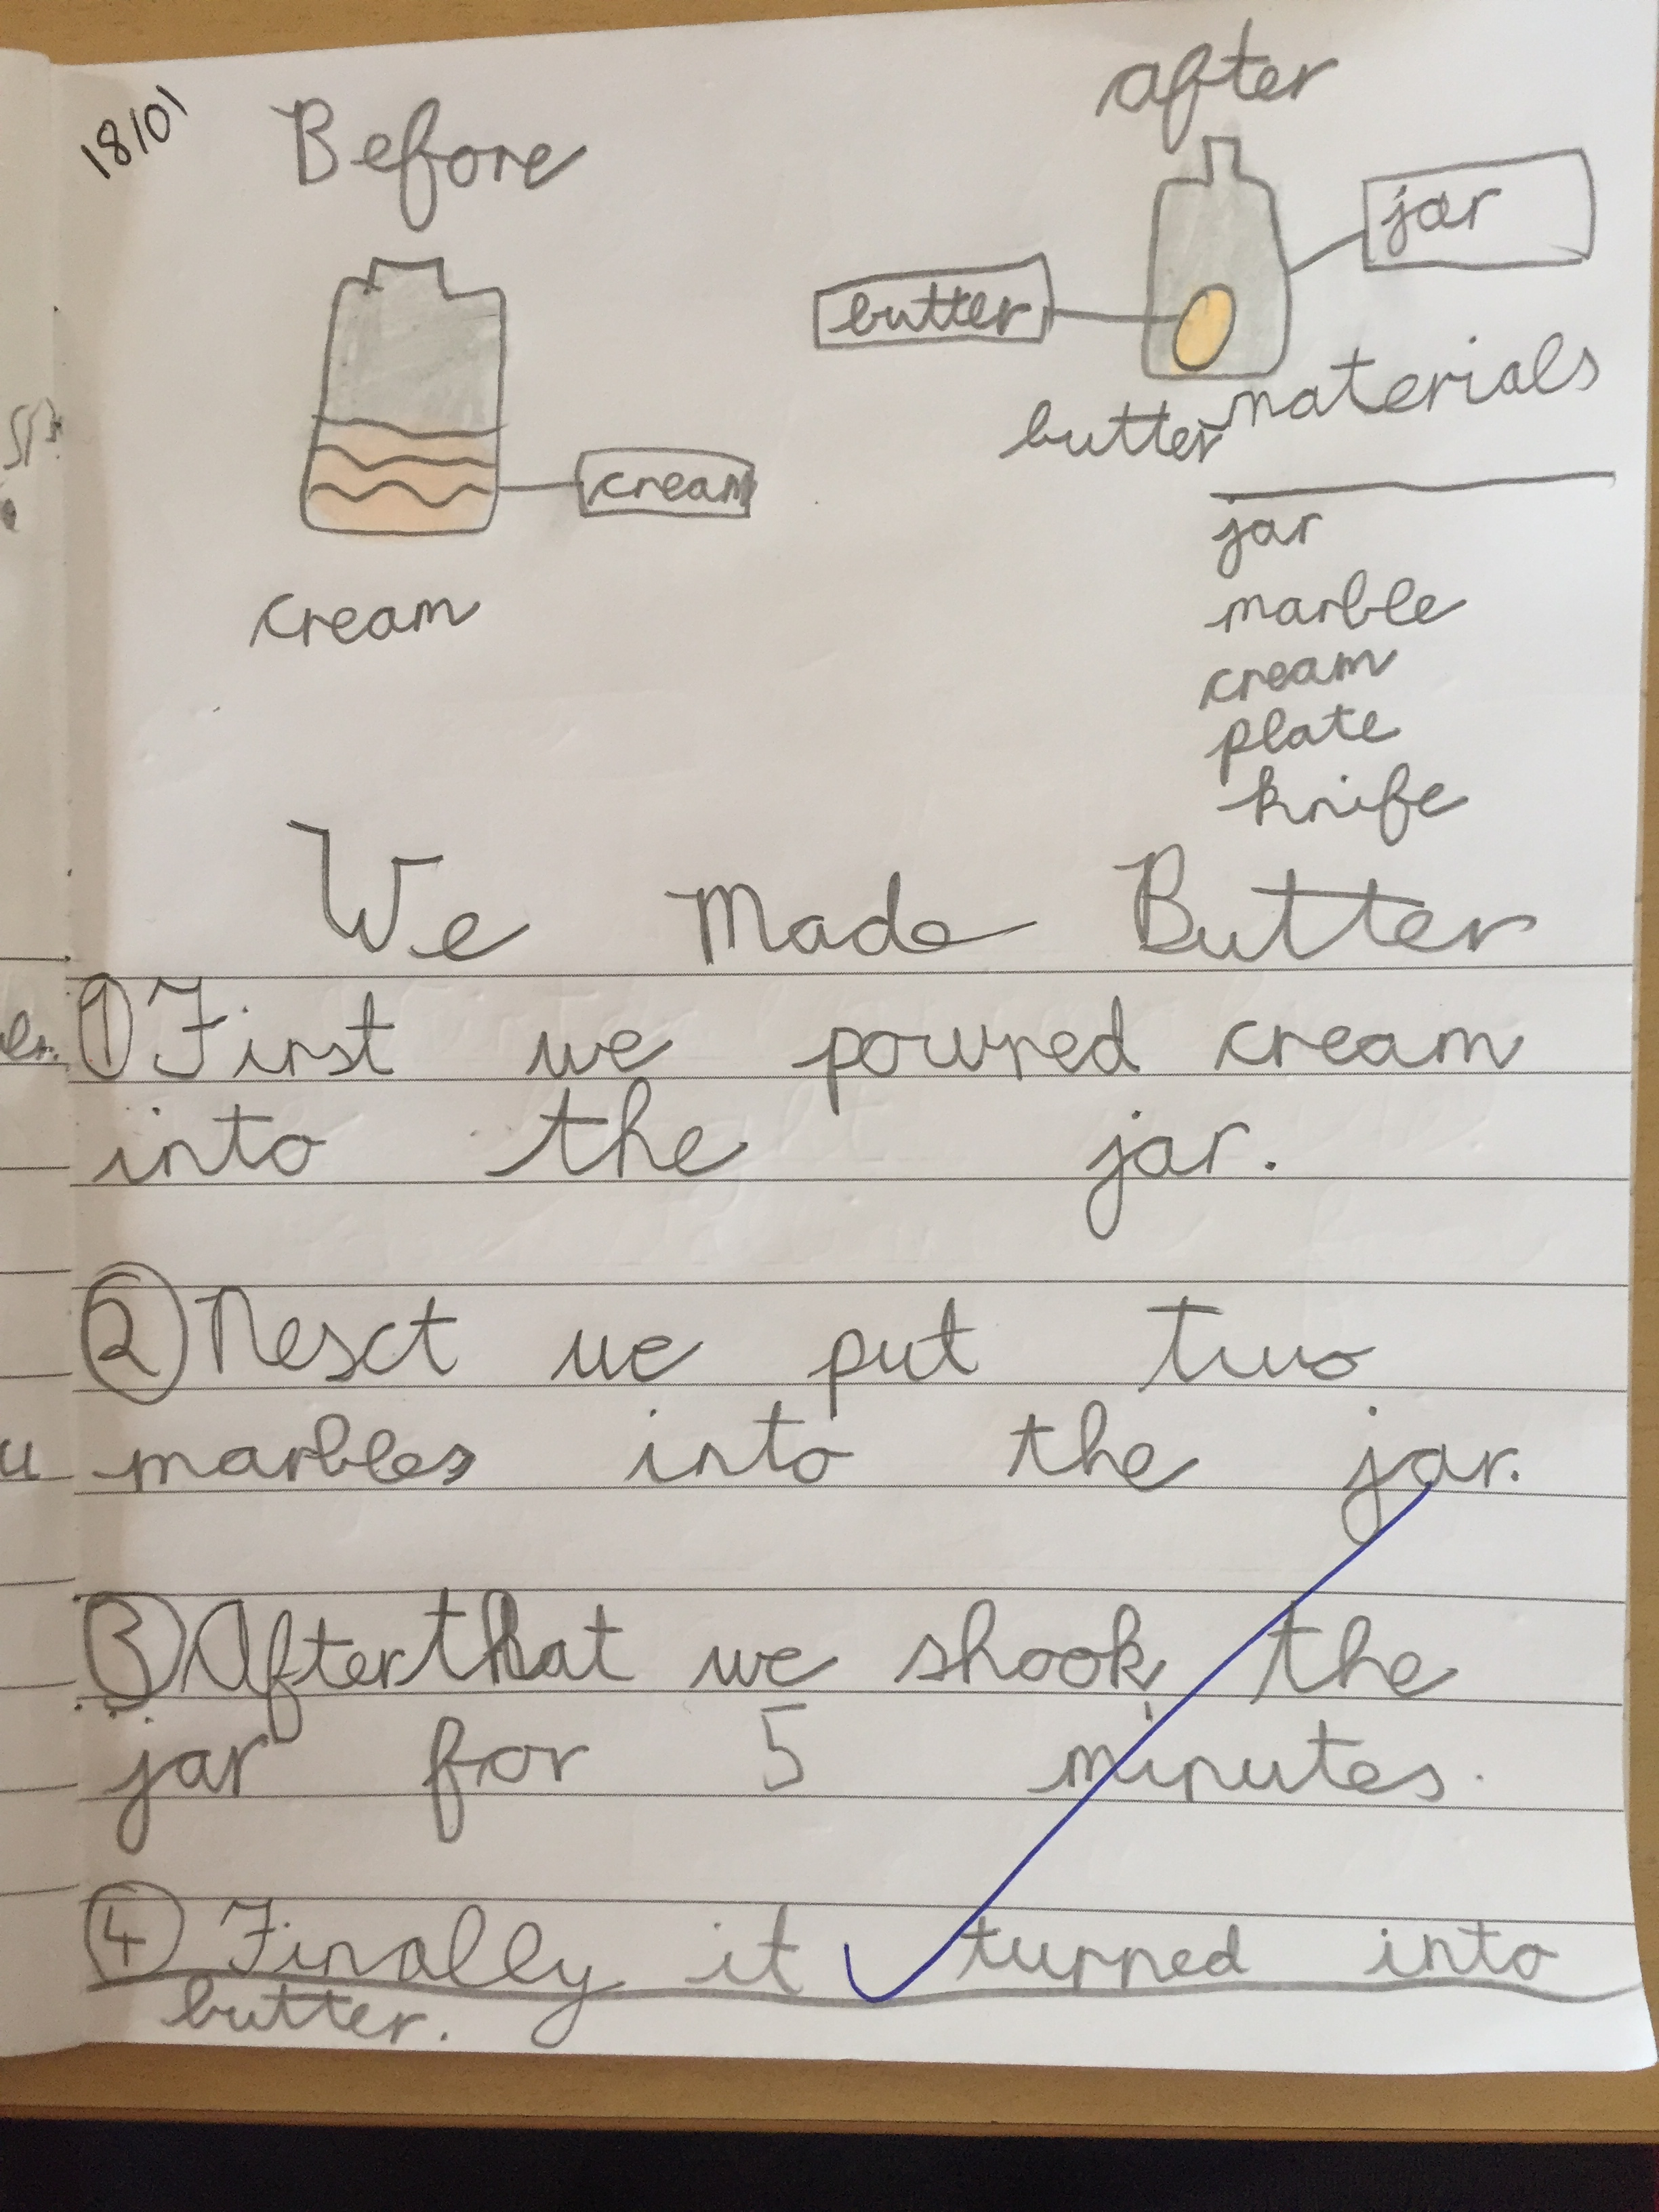 18/01
Before
after
jar
butter
cream
butter
cream
materials
jar
marble
cream
plate
knife
We Made Butter
① First we poured cream
into the jar.
② Next we put two
marbles into the jar.
③ After that we shook the
jar for 5 minutes.
④ Finally it turned into
butter.